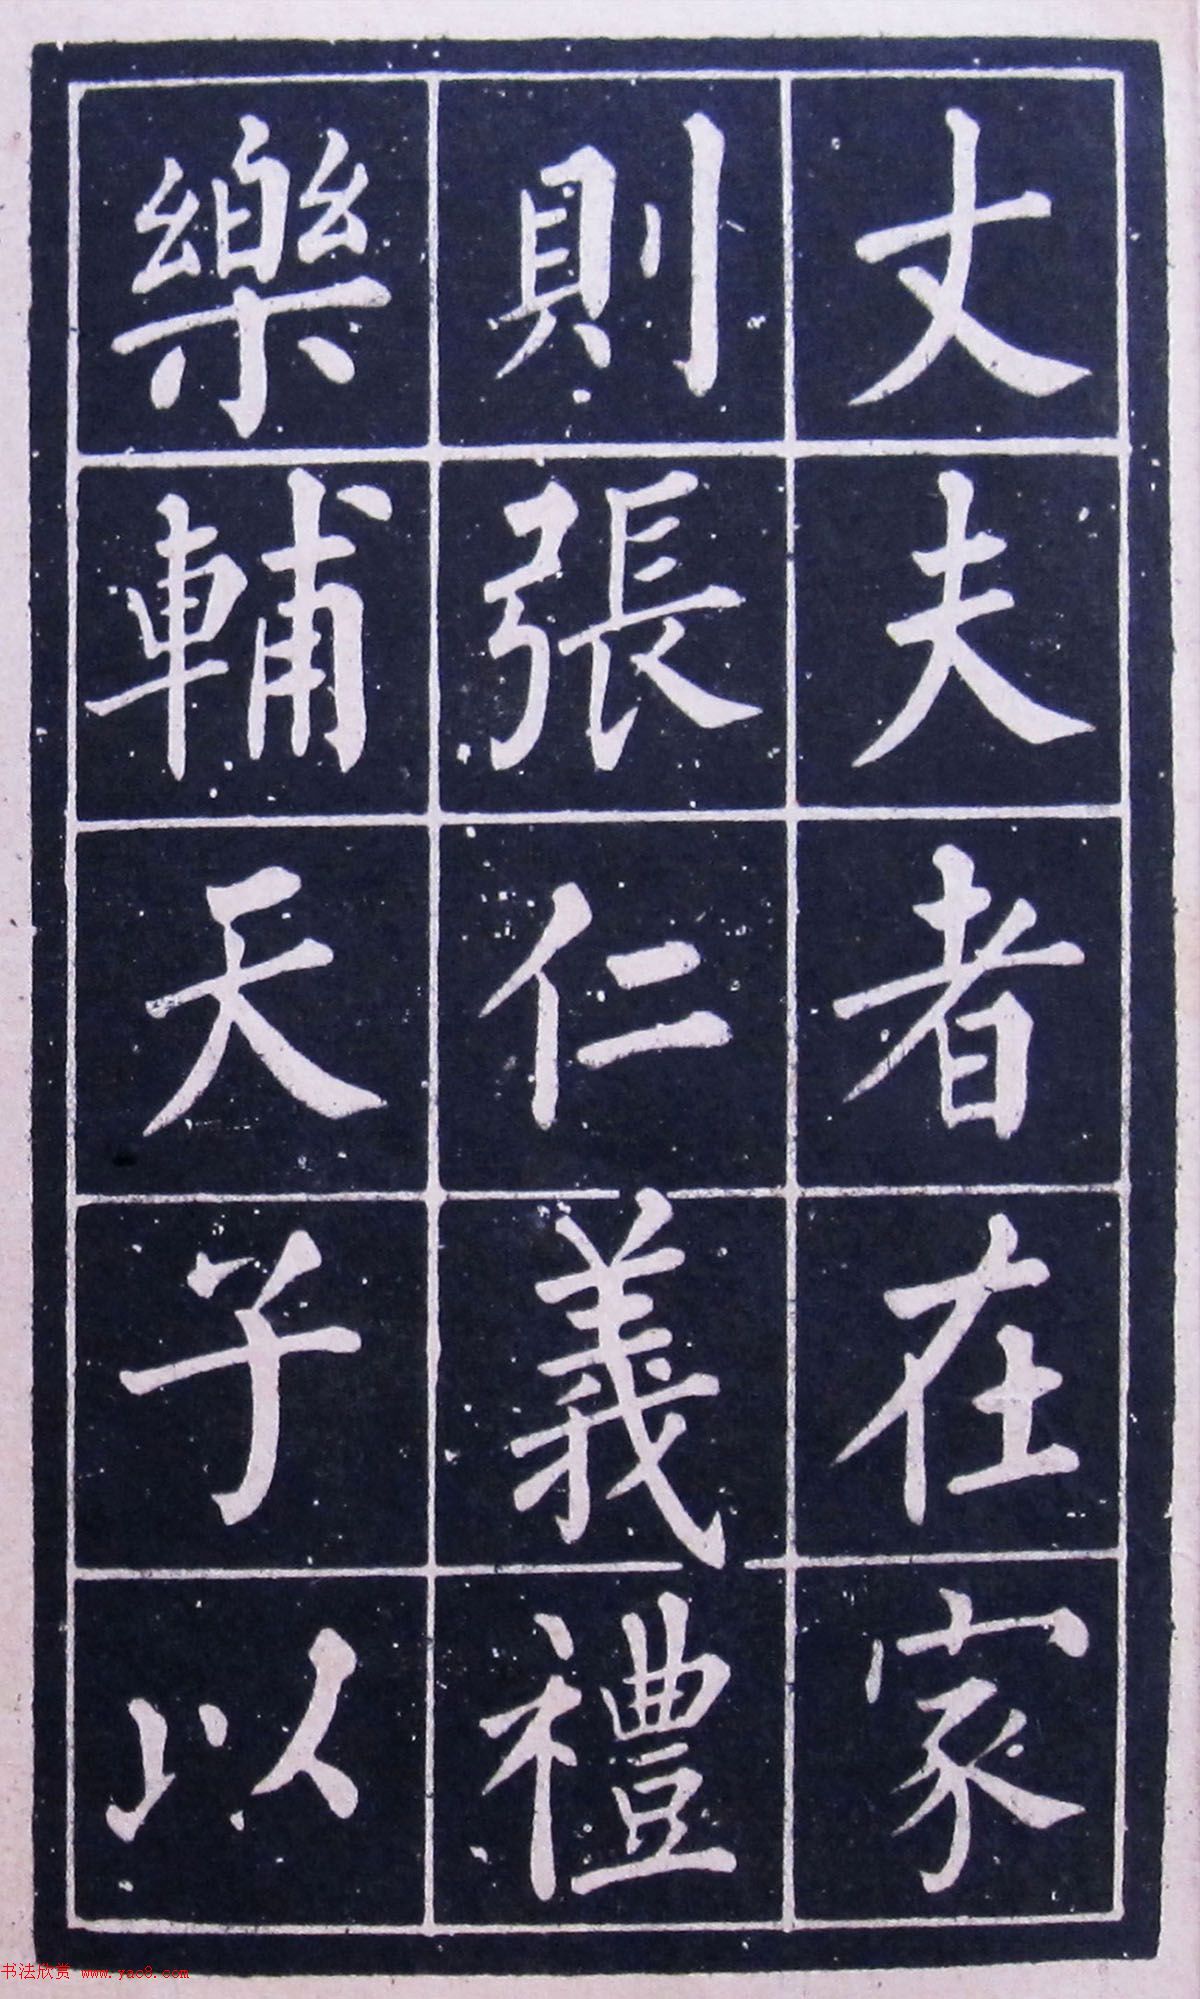 丈夫者在家
則張仁義禮
樂輔天子以
书法欣赏 www.yac8.com